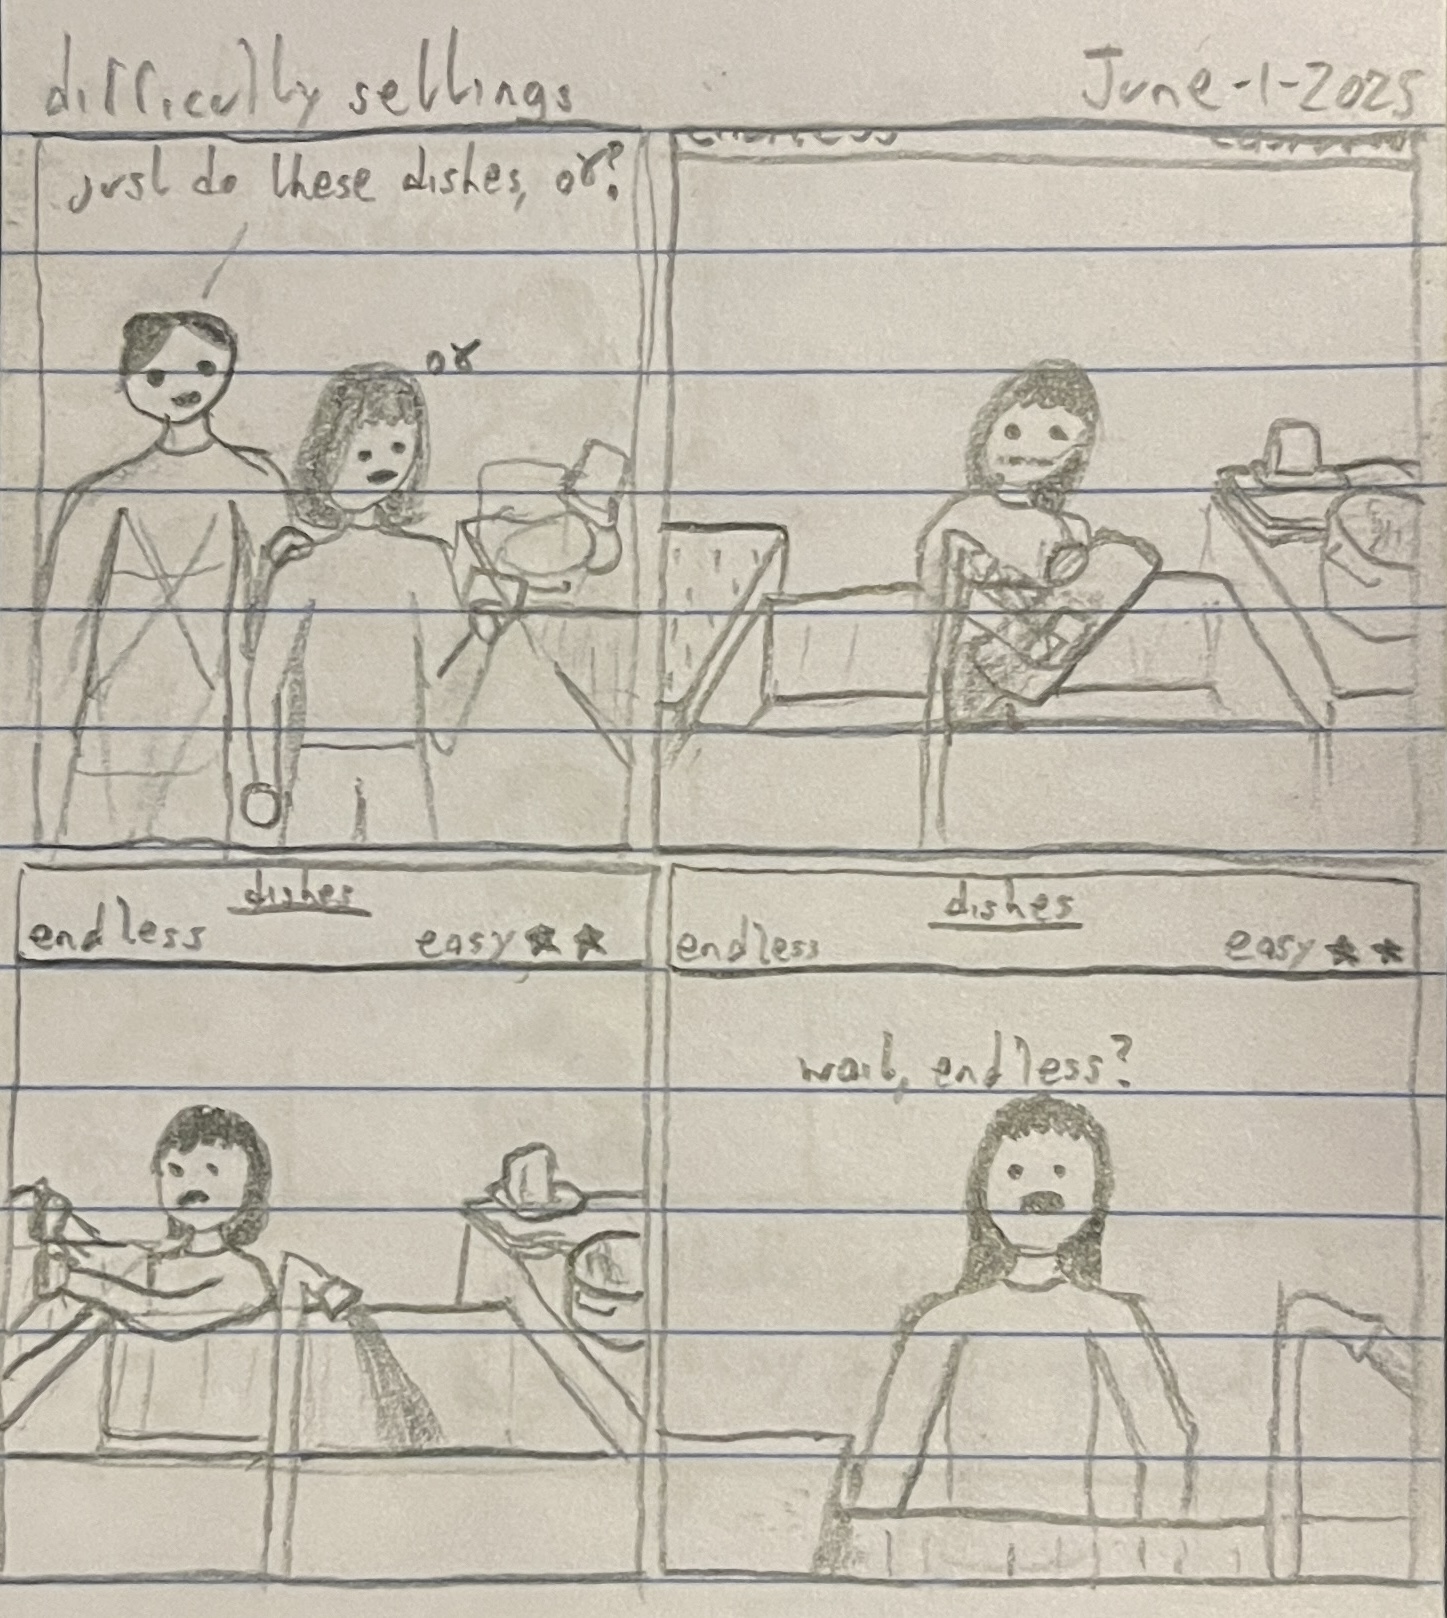 difficulty settings
June-1-2025
just do these dishes, ok?
ok
dishes
endless easy ★ ★
dishes
endless easy ★ ★
wait, endless?